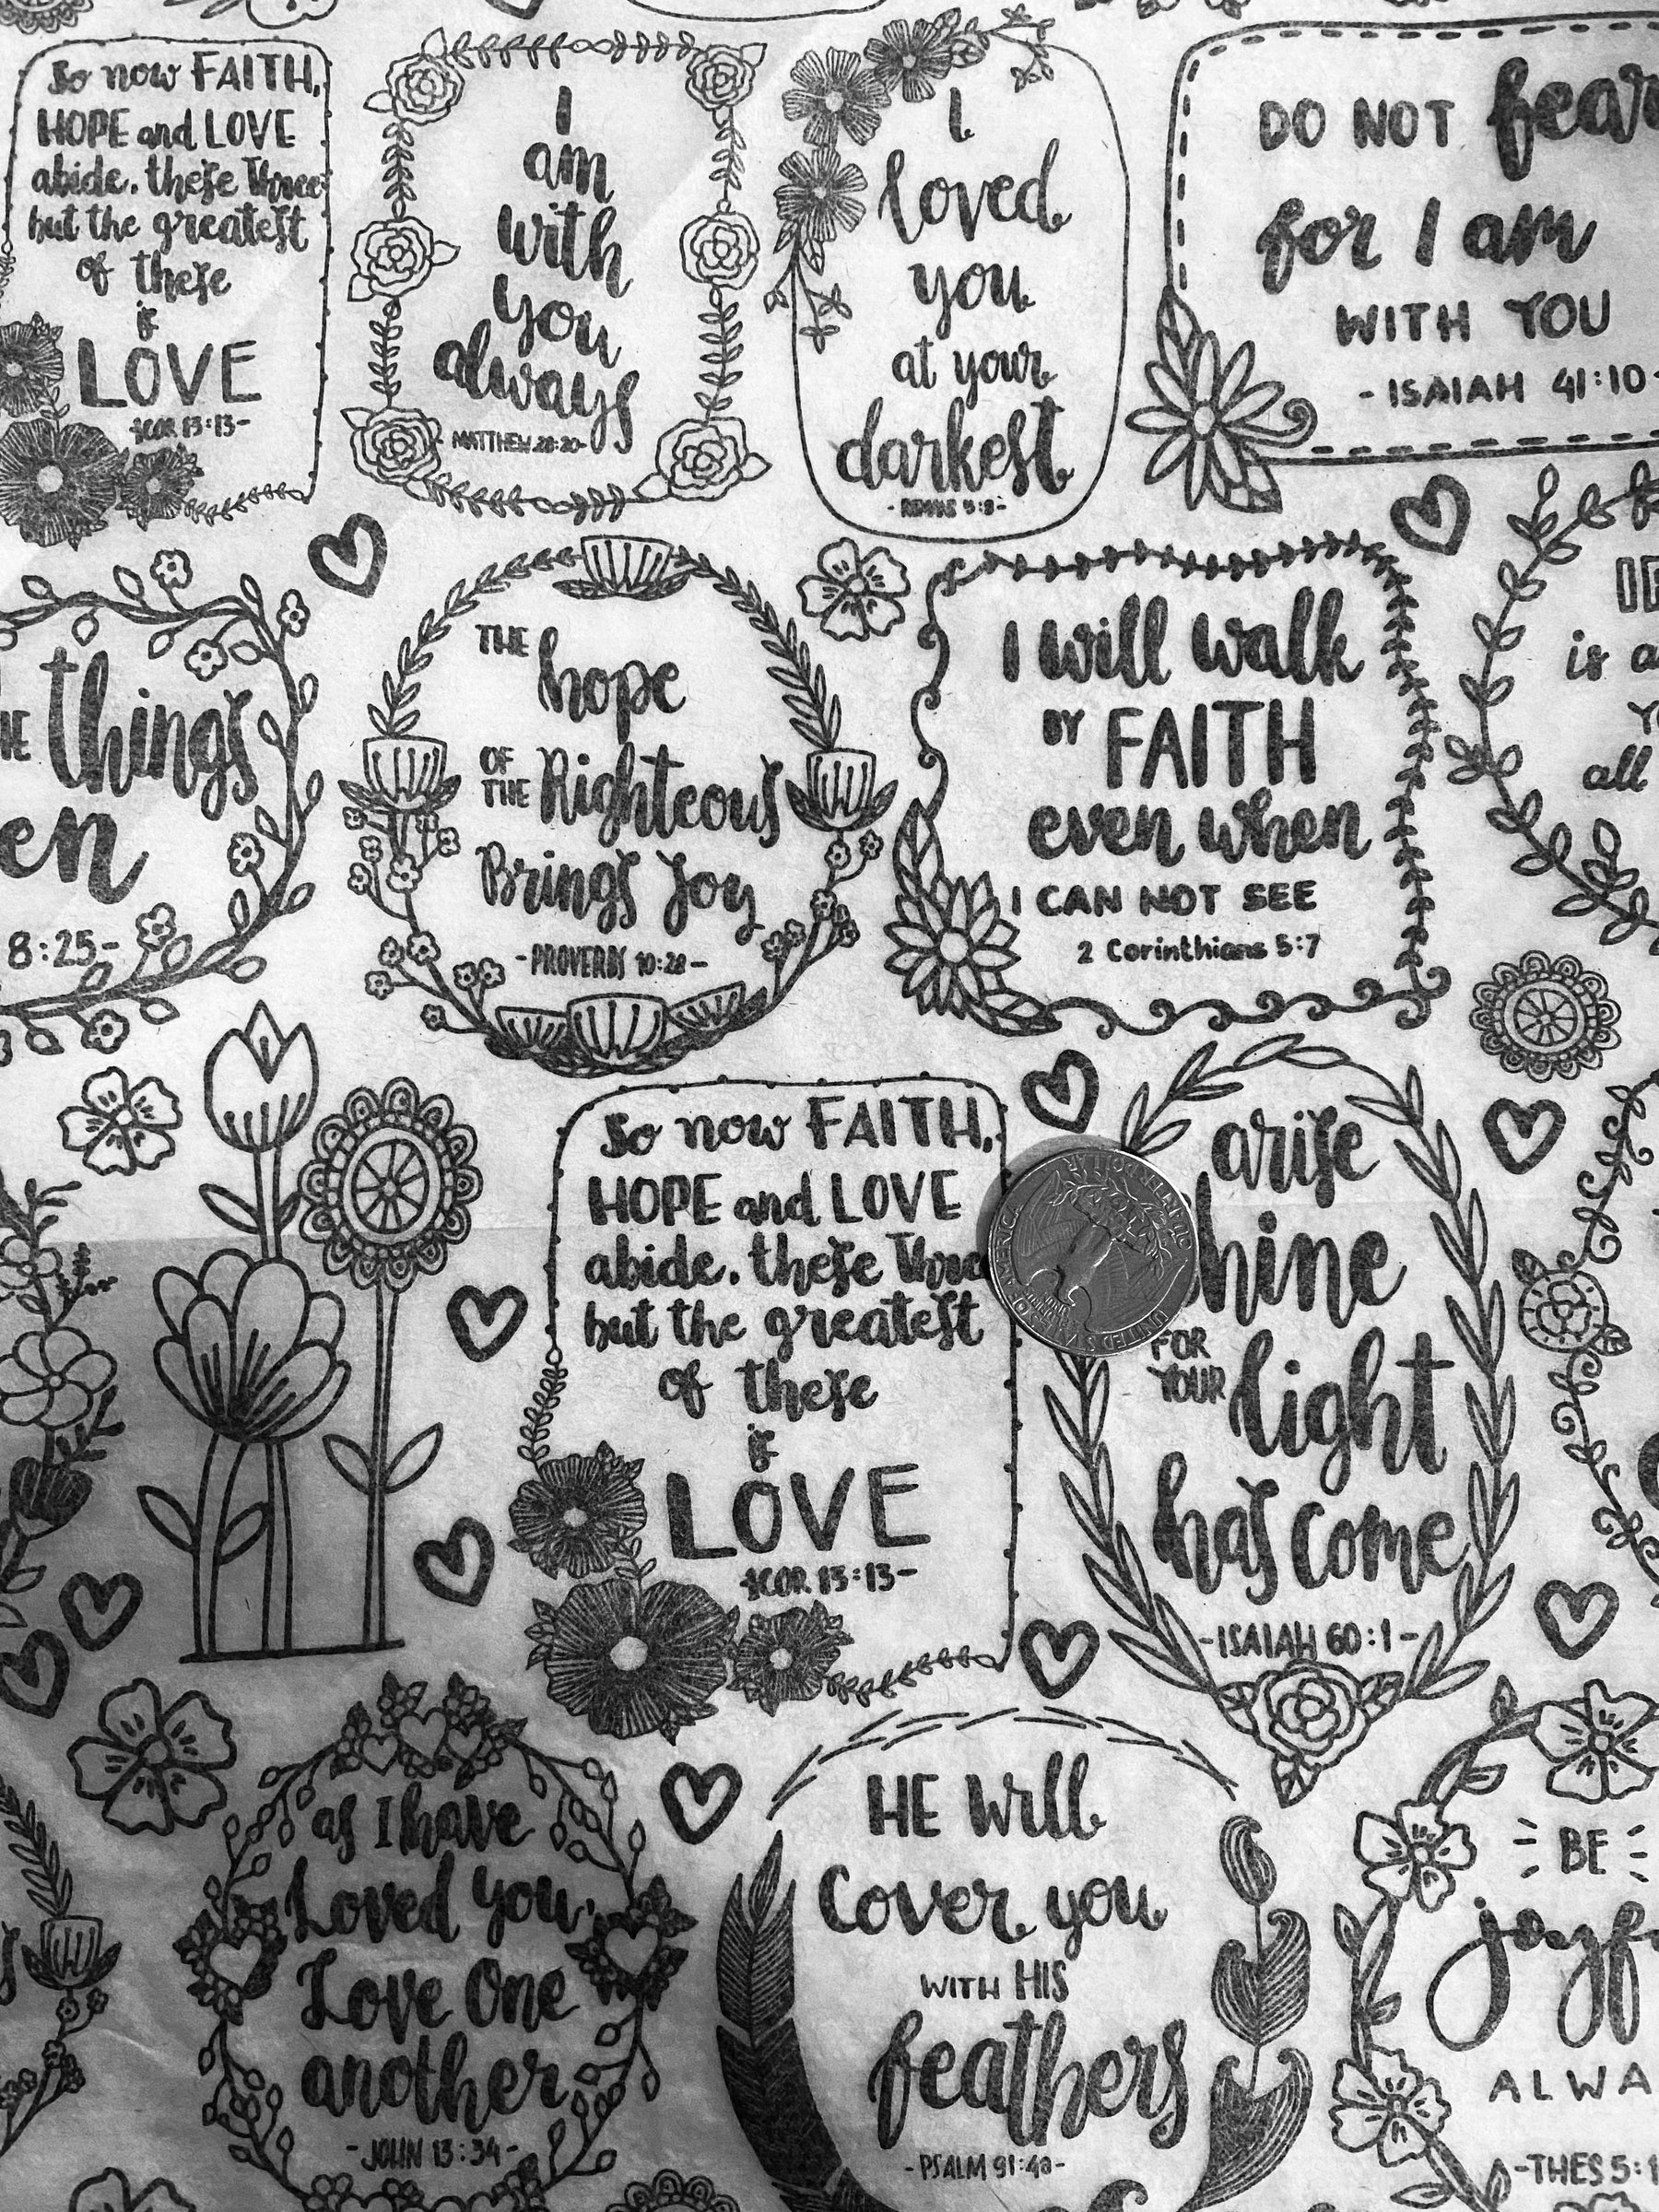 So now FAITH,
HOPE and LOVE
abide. these Three
but the greatest
of these
is
LOVE
1COR 13:13-
I
am
with
you
always
- MATTHEW 28:20-
I
loved
you
at your
darkest
- ROMANS 5:8-
DO NOT fear
for I am
WITH YOU
- ISAIAH 41:10-
things
en
8:25-
THE hope
OF THE Righteous
Brings Joy
- PROVERBS 10:28 -
I will walk
BY FAITH
even when
I CAN NOT SEE
2 Corinthians 5:7
is
all
So now FAITH,
HOPE and LOVE
abide. these Three
but the greatest
of these
is
LOVE
1COR 13:13-
QUARTER DOLLAR
UNITED STATES OF AMERICA
arise
hine
FOR YOUR light
has come
-ISAIAH 60:1-
as I have
Loved you,
Love One
another
-JOHN 13:34-
HE Will
Cover you
WITH HIS
feathers
-PSALM 91:4a-
BE
joyf
ALWA
-THES 5:1